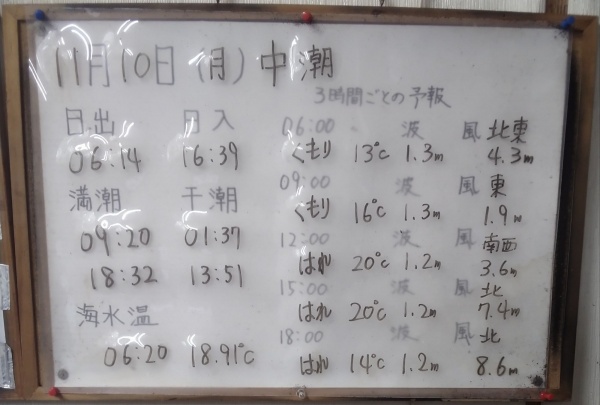 11月10日(月)中潮
日出 月入
06:14 16:39
満潮 干潮
09:20 01:37
18:32 13:51
海水温
06:20 18.91℃
3時間ごとの予報
06:00 波 風 北東
くもり 13℃ 1.3m 4.3m
09:00 波 風 東
くもり 16℃ 1.3m 1.9m
12:00 波 風 南西
はれ 20℃ 1.2m 3.6m
15:00 波 風 北
はれ 20℃ 1.2m 7.4m
18:00 波 風 北
はれ 14℃ 1.2m 8.6m